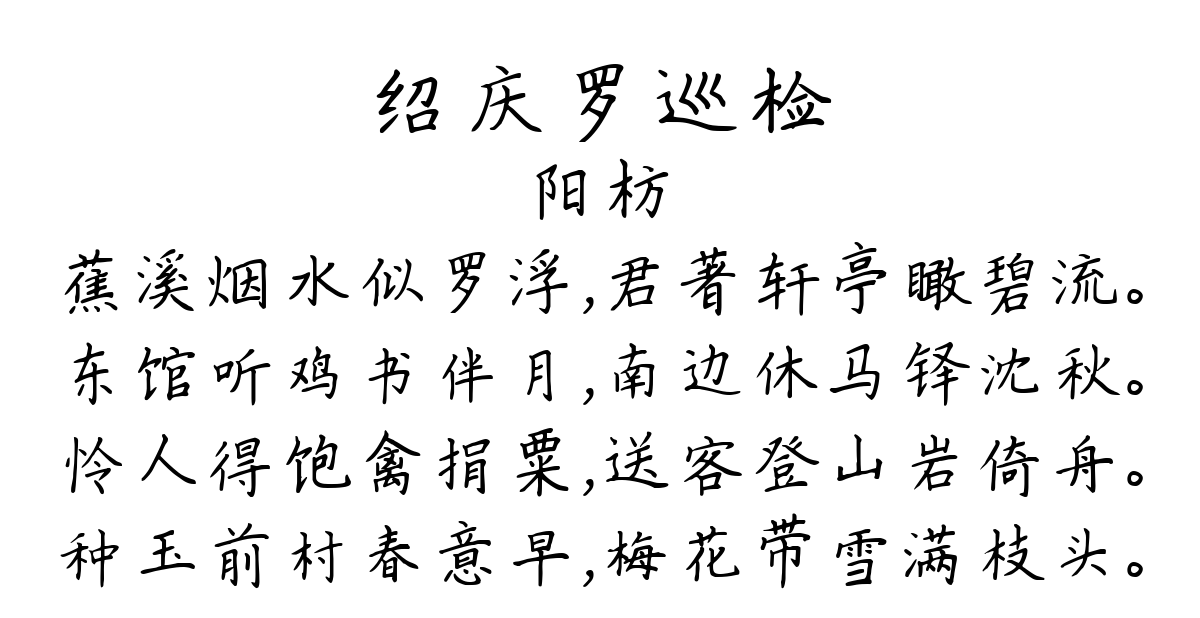 绍庆罗巡检
阳枋
蕉溪烟水似罗浮,君著轩亭瞰碧流。
东馆听鸡书伴月,南边休马铎沈秋。
怜人得饱禽捐粟,送客登山岩倚舟。
种玉前村春意早,梅花带雪满枝头。